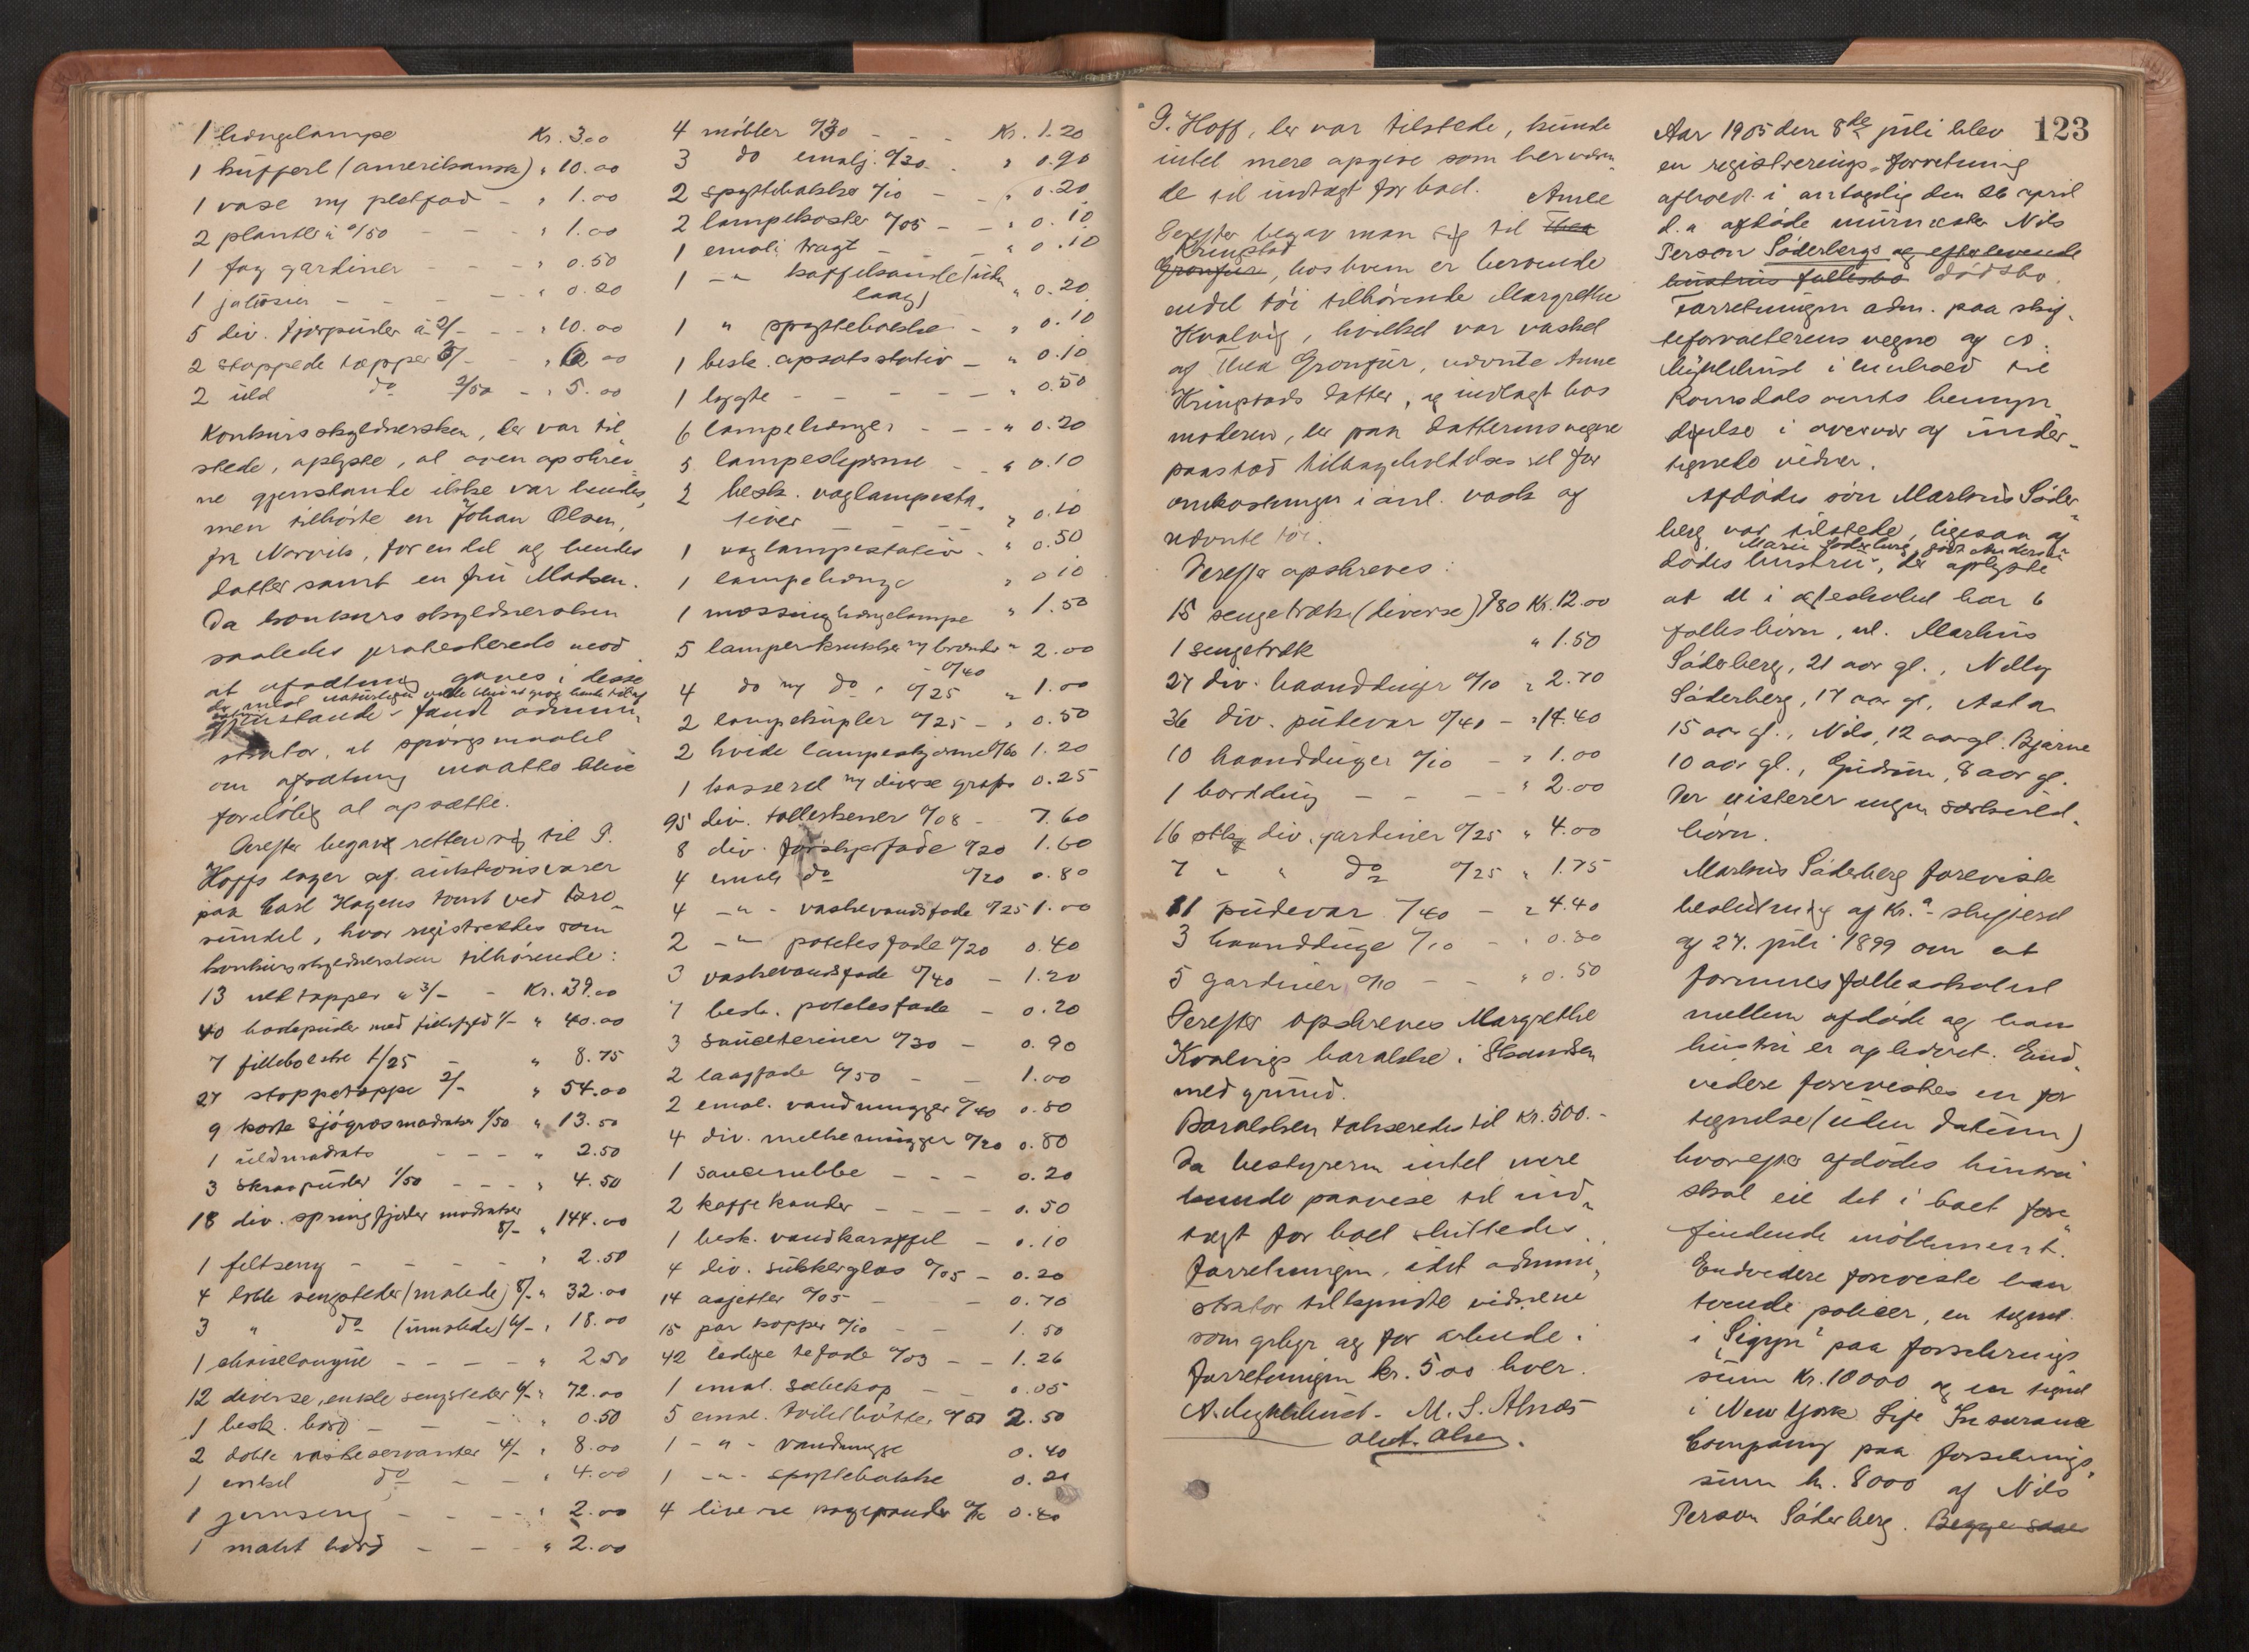 1 hængelampe Kr. 3.00
1 kuffert (amerikansk) " 10.00
1 vase m/ pletfad - " 1.00
2 planter à 0/50 - - " 1.00
1 fag gardiner - - " 0.50
1 jalousi - - - " 0.20
5 div. fjærpuder à 2/- - - " 10.00
2 stoppede tæpper 3/- " 6.00
2 uld do 2/50 - " 5.00
Konkursskyldnersken, der var til
stede, oplyste, at oven opskrev
ne gjenstande ikke var hendes,
men tilhørte en Johan Olsen,
fra Narvik, for en del og hendes
datter samt en fru Madsen.
Da konkursskyldnersken
saaledes protesterede mod
at afsætning gaves i disse
gjenstande - fandt admini
strator, at spørgsmaalet
om afsætning maatte blive
foreløbig at opsætte.
Derefter begav retten sig til P.
Hoffs lager af auktionsvarer
paa Carl Hagens tomt ved Bro
sundet, hvor registreredes som
konkursskyldnersken tilhørende:
13 uldtæpper à 3/- - Kr. 39.00
40 hodepuder med fillefyld 1/- " 40.00
7 fillebolstre 1/25 - " 8.75
27 stoppetæppe 2/- " 54.00
9 korte sjøgræsmadratser 1/50 " 13.50
1 uldmadrats - - - " 2.50
3 skraapuder 1/50 - - - " 4.50
18 div. springfjeder madratser
8/- " 144.00
1 feltseng - - - - " 2.50
4 doble sengsteder (malede) 8/- " 32.00
3 " do (umalede) 6/- " 18.00
1 chaiselongue - - - - " 2.50
12 diverse, enkle sengsteder 6/- " 72.00
1 besk. bord - - - " 0.50
2 doble vaskeservanter 4/- " 8.00
1 enkel do - - " 4.00
1 jernseng - - - - " 2.00
1 malet bord - - - " 2.00
4 møbler 0/30 - - - Kr. 1.20
3 do emalj. 0/30 - " 0.90
2 spyttebakker 0/10 - - " 0.20
2 lampekoster 0/05 - - " 0.10
1 emalj. tragt - - " 0.10
1 -"- kaffekande (uden
laag) " 0.20
1 " spyttebakke - " 0.10
1 besk. opsatsstativ - " 0.10
1 løgte - - - - - " 0.50
6 lampehænger - - - " 0.20
5 lampeskjærme - - " 0.10
2 besk. væglampesta
tiver - - - - " 0.10
1 væglampestativ - " 0.50
1 lampehænge " 0.10
1 messinghængelampe " 1.50
5 lamper krukker m/ brænder " 2.00
- 0/40
4 do m/ do " 0/25 " 1.00
2 lampekupler 0/25 - " 0.50
2 hvide lampeskjærme 0/60 1.20
1 kasserol m/ diverse grafs 0.25
95 div. tallerkener 0/08 - 7.60
8 div. forskjærfade 0/20 1.60
4 emalj. do 0/20 0.80
4 -"- vaskevandsfade 0/25 1.00
2 -"- potetesfade 0/20 0.40
3 vaskevandsfade 0/40 - 1.20
7 besk. potetesfade - 0.20
3 sauceteriner 0/30 - 0.90
2 laagfade 0/50 - - 1.00
2 emal. vandmugger 0/40 0.80
4 div. melkemugger 0/20 0.80
1 saucenebbe - - - 0.20
2 kaffekander - - - - 0.50
1 besk. vandkaraffel - 0.10
4 div. sukkerglas 0/05 - 0.20
14 asjetter 0/05 - - 0.70
15 par kopper 0/10 - - 1.50
42 ledige tefade 0/03 - - 1.26
1 emal. sæbekop - - 0.05
5 emal. toiletbøtter 0/50 2.50
1 -"- vandmugge 0.40
1 -"- spyttebakke 0.20
4 diverse kagepander 0/10 0.40
P. Hoff, der var tilstede, kunde
intet mere opgive som henværen
de til indtægt for boet. Anne
Derefter begav man sig til Thea
Kringstad
Gronfur, hos hvem er beroende
endel tøi tilhørende Margrethe
Kvalvig, hvilket var vasket
af Thea Gronfur, udvnte Anne
Kringstads datter, og indlagt hos
moderen, der paa datterens vegne
paastod tilbageholdelsesret for
omkostninger i anl. vask af
udvnte tøi.
Derefter opskreves:
15 sengetræk (diverse) 0/80 Kr. 12.00
1 sengetræk " 1.50
27 div. haandduger 0/10 " 2.70
36 div. pudevar 0/40 - " 14.40
10 haandduger 0/10 - " 1.00
1 borddug - - - - " 2.00
16 stkr div. gardiner 0/25 " 4.00
7 " " do 0/25 " 1.75
11 pudevar 0/40 - " 4.40
3 haandduge 0/10 - " 0.30
5 gardiner 0/10 - - " 0.50
Derefter opskreves Margrethe
Kvalvigs barakke i Skansen
med grund.
Barakken takseredes til Kr. 500.-
Da bestyreren intet mere
kunde paavise til ind
tægt for boet sluttedes
forretningen, idet admini
strator tilkjendte vidnerne
som gebyr og for arbeide i
forretningen kr. 5.00 hver.
M. S. Alnæs
Olaf. Olsen.
123
Aar 1905 den 8de juli blev
en registrerings-forretning
afholdt i antagelig den 26 april
d.a. afdøde murmester Nils
Person Söderbergs og efterlevende
hustrus fællesbo dødsbo.
Forretningen adm. paa skif
teforvalterens vegne af
i henhold til
Romsdals amts bemyn
digelse i overvær af under
tegnede vidner.
Afdødes søn Markus Söder
berg var tilstede, ligesaa af
Marie Söderberg født Anderson
dødes hustru, der oplyste
at de i ægteskabet har 6
fællesbørn, nl. Markus
Söderberg, 21 aar gl., Nelly
Söderberg, 17 aar gl, Asta
15 aar gl., Nils, 12 aar gl. Bjarne
10 aar gl., Gudrun, 8 aar gl.
Der existerer ingen særkuld
børn.
Markus Söderberg foreviste
beslutning af Kr.a skifteret
af 27. juli 1899 om at
formuesfællesskabet
mellem afdøde og hans
hustru er ophævet. End
videre forevistes en for
tegnelse (uden datum)
hvorefter afdødes hustru
skal eie det i boet fore
findende møblement.
Endvidere foreviste han
tvende policer, en tegnet
i "Sigyn" paa forsikrings
sum Kr. 10000 og en tegnet
i New York Life Insurance
Company paa forsikrings
sum kr. 8000 af Nils
Person Söderberg. Begge saae